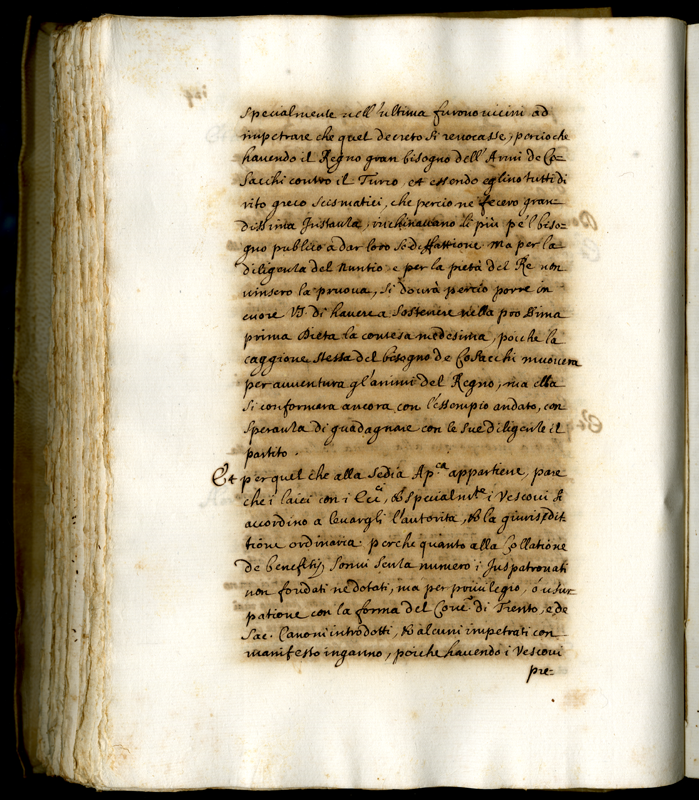 specialmente nell'ultima furono vicini ad
impetrare che quel decreto si revocasse, percioche
havendo il Regno gran bisogno dell'Armi de Co=
sacchi contro il Turco, et essendo eglino tutti di
rito greco scismatici, che percio ne fecero gran=
dissima Instanza, inchinavano di più p'el biso=
gno publico a dar loro sodisfattione. ma per la
diligenza del Nuntio e per la pietà del Re non
vinsero la pruova, si dovrà percio porre in
cuore VS. di havere a sostenere nella prossima
prima Dieta la contesa medesima, poiche la
caggione stessa del bisogno de Cosacchi muovera
per avventura gl'animi del Regno, ma ella
si conformera ancora con l'essempio andato, con
speranza di guadagnare con le sue diligenze il
partito.
Et per quel che alla Sedia Ap.ca appartiene, pare
che i laici con i Ecci, & specialmte i Vescovi si
accordino a levargli l'autorita, & la giurisdit
tione ordinaria. perche quanto alla Collatione
de benefitij sonvi senza numero i Juspatronati
non fondati ne dotati, ma per privilegio, ò usur
patione con la forma del Conc. di Trento, e de
Sac. Canoni introdotti, & alcuni impetrati con
manifesto inganno, poiche havendo i Vescovi
pre=